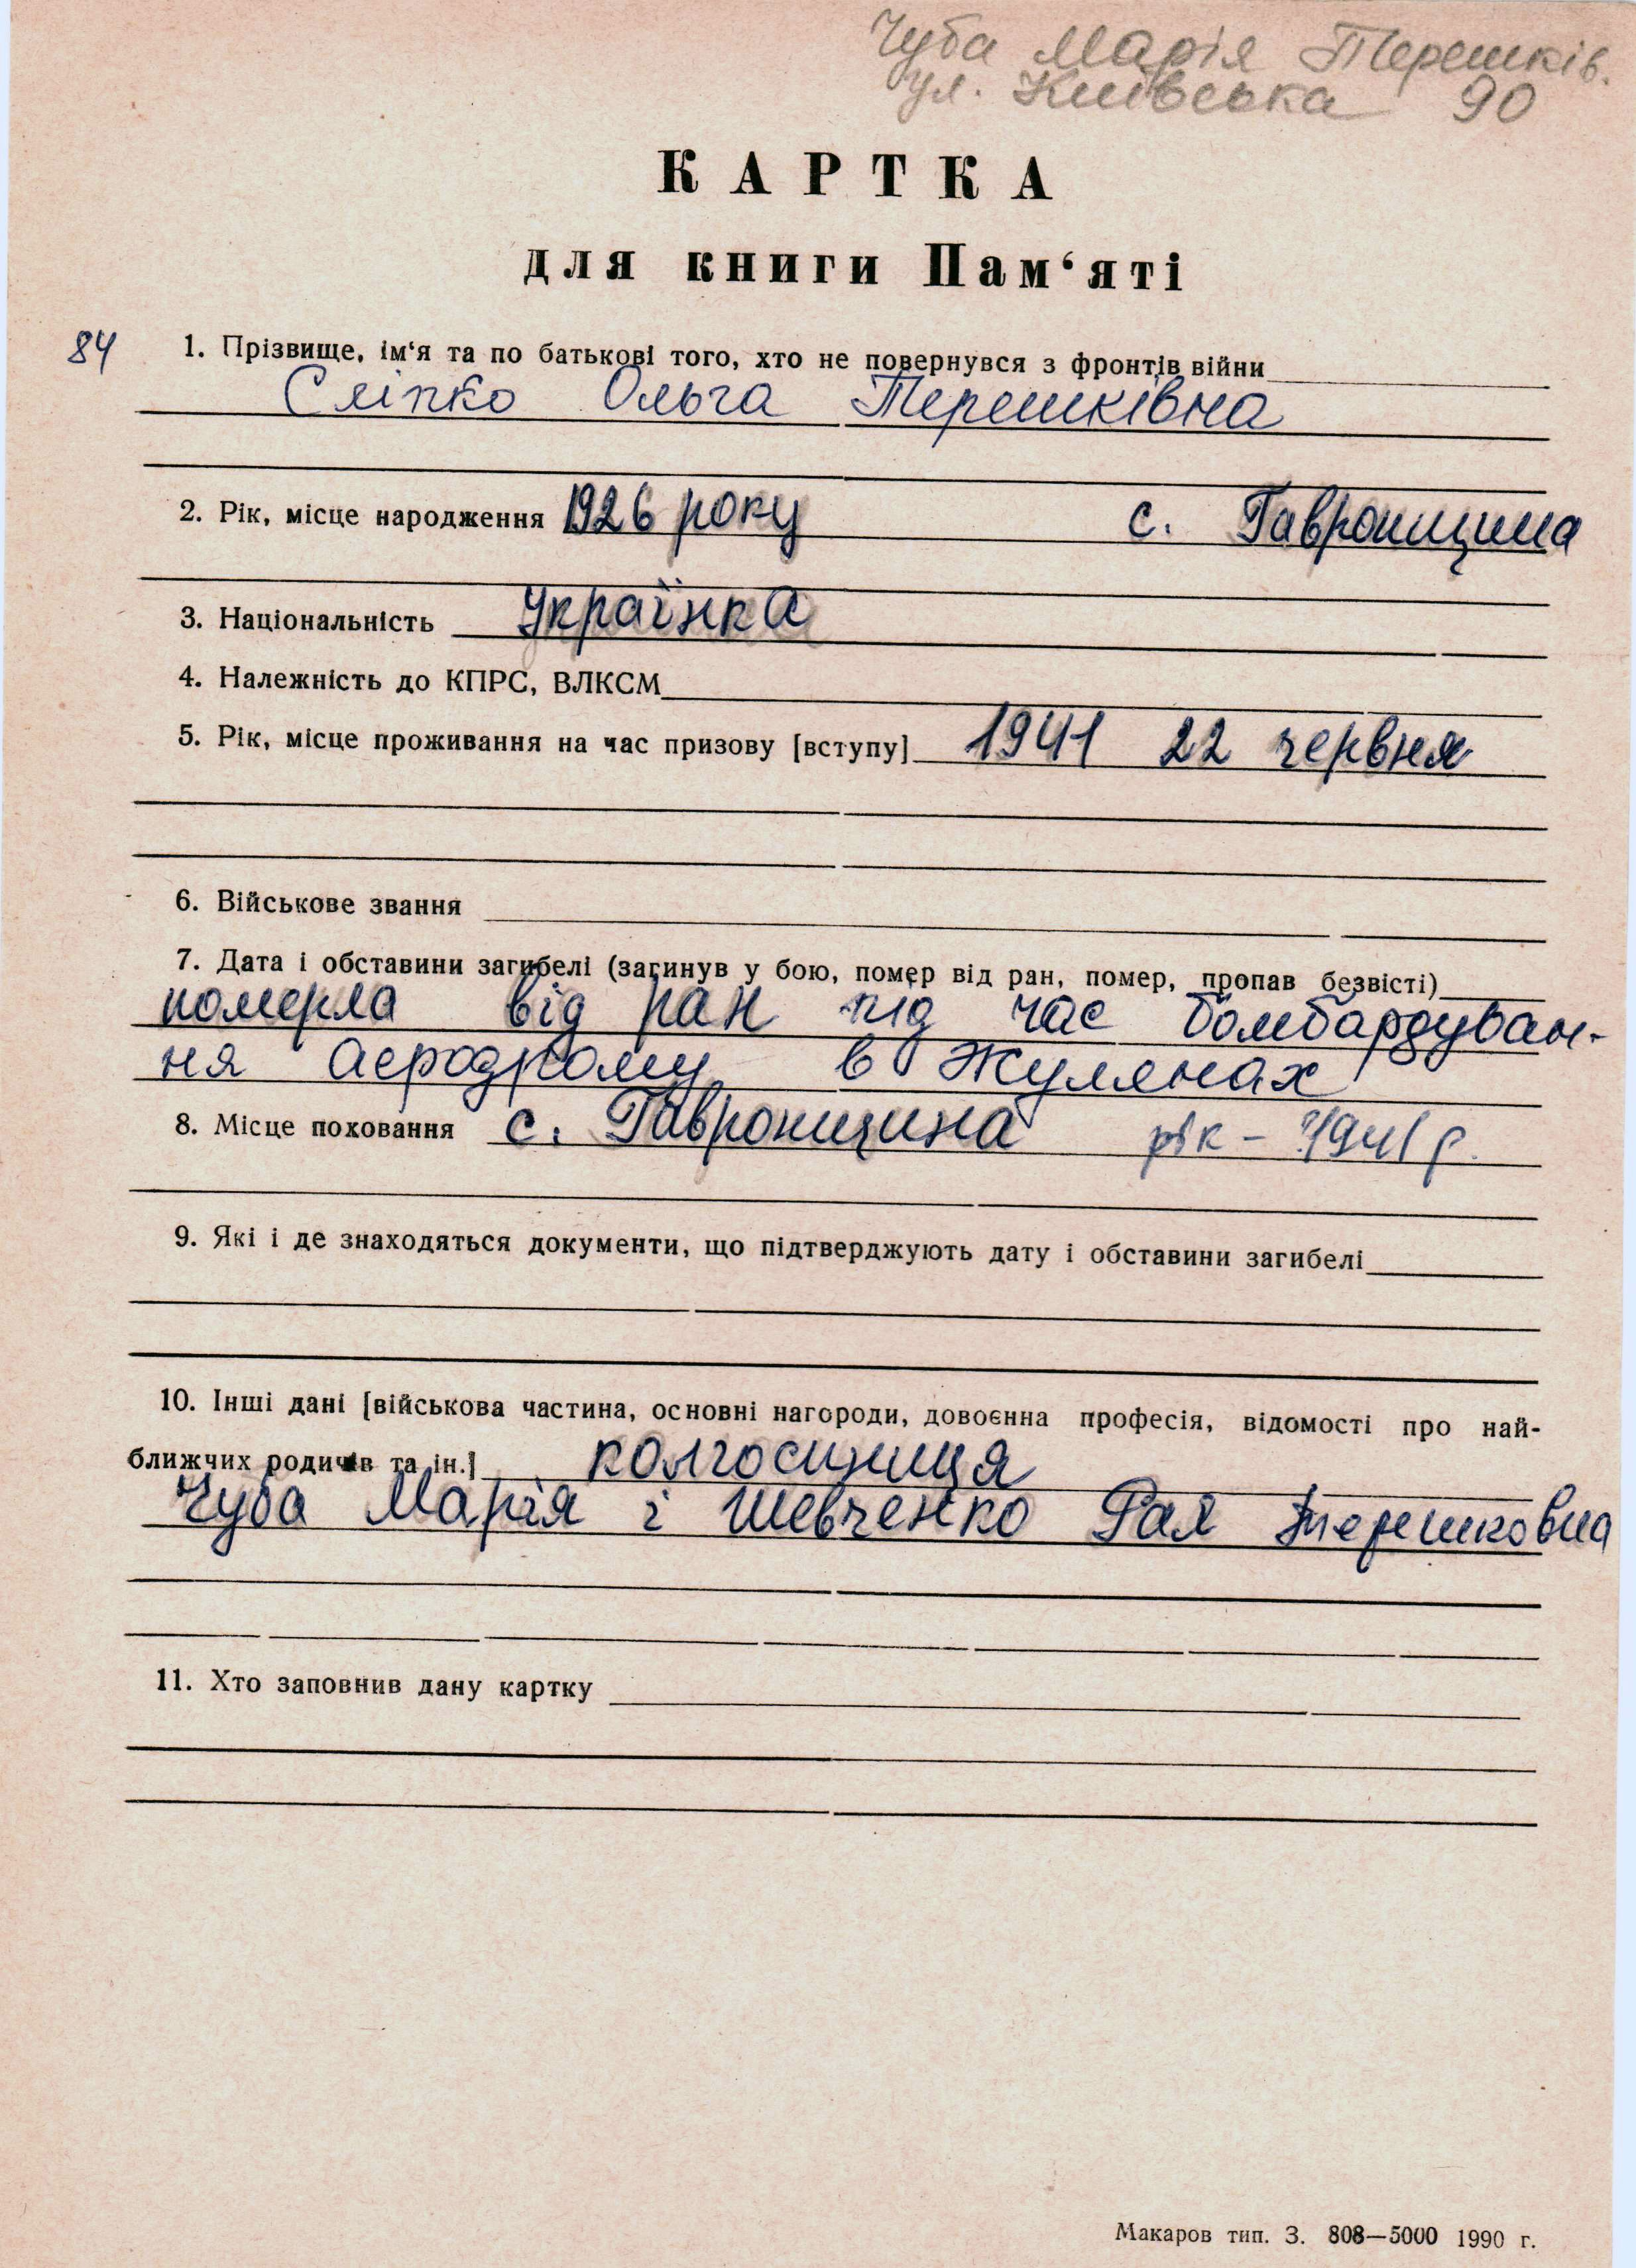 Чуба Марія Терешків.
ул. Київська 90
КАРТКА
для книги Пам‘яті
84 1. Прізвище, ім‘я та по батькові того, хто не повернувся з фронтів війни
Сліпко Ольга Терешківна
2. Рік, місце народження 1926 року с. Гавронщина
3. Національність Українка
4. Належність до КПРС, ВЛКСМ
5. Рік, місце проживання на час призову [вступу] 1941 22 червня
6. Військове звання
7. Дата і обставини загибелі (загинув у бою, помер від ран, помер, пропав безвісті)
померла від ран під час бомбардуван-
ня аеродрому в Жулянах
8. Місце поховання с. Гавронщина рік - 1941 р.
9. Які і де знаходяться документи, що підтверджують дату і обставини загибелі
10. Інші дані [військова частина, основні нагороди, довоєнна професія, відомості про най-
ближчих родичів та ін.] колгоспниця
Чуба Марія і Шевченко Рая Терешковна
11. Хто заповнив дану картку
Макаров тип. З. 808—5000 1990 г.